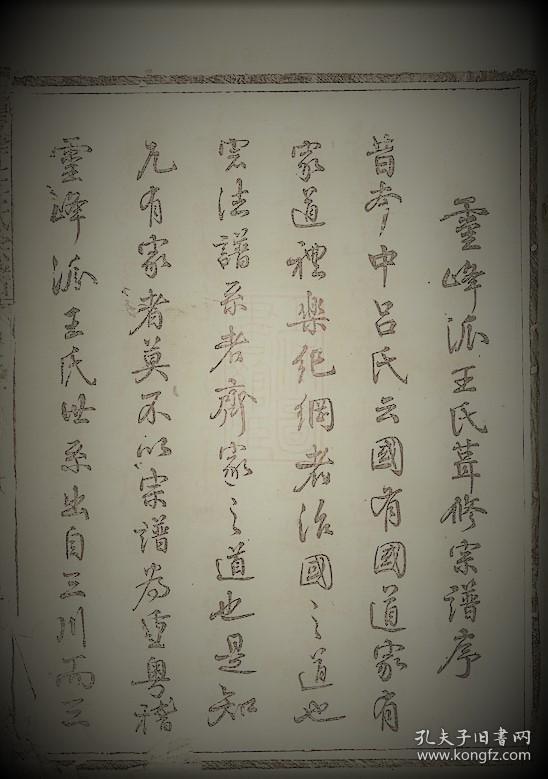 靈峰派王氏葺修宗譜序
昔岑中呂氏云國有國道家有
家道禮樂紀綱者治國之道也
宏法譜系者齊家之道也是知
凡有家者莫不以宗譜為重粵稽
靈峰派王氏世系出自三川而三
孔夫子旧书网
www.kongfz.com